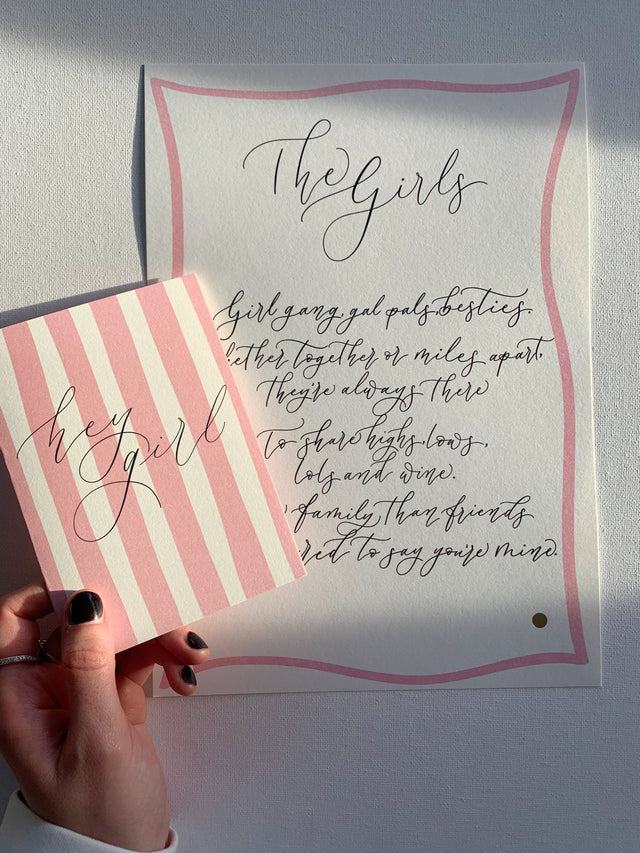 The Girls
Girl gang, gal pals, besties.
ether together or miles apart,
they're always there
to share highs, lows,
lols and wine.
family than friends
red to say you're mine.
hey
girl